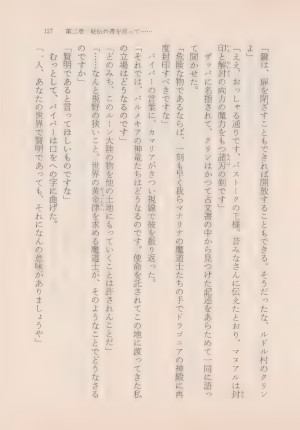 157　第二章　秘伝の書を巡って……
「鍵は、扉を閉ざすこともできれば開放することもできる。そうだったな、ルドル村のクリン
「ええ、おっしゃる通りです。バストークの王様。昔みなさんに伝えたとおり、マヌアルは封
印と解封の両方の魔力をもつ諸刃の剣です」
　ザッパに名指されて、クリンはかつて古文書の中から見つけた記述をあらためて一同に語っ
て聞かせた。
「危険な物であるならば、一刻も早く我らマナリナの魔道士たちの手でドラゴニアの神殿に再
度封印すべきですな」
　バイパーの言葉に、カマリアがきつい視線で彼を振り返った。
「それでは、パルメキアの神竜たちはどうなるのです。使命を託されてこの地に渡ってきた私
の立場はどうなるのです」
「どのみち、このルーン大陸の物を他の土地にもっていくことは、許されんことだ」
「……なんと視野の狭いこと、世界の黄金律を求める魔道士が、そんなことでどうなさる
のですか」
「賢明であると言ってほしいものですな」
　むっとして、バイパーは口をへの字に曲げた。
「一人、あなたの世界でだけ賢明であっても、それになんの意味がありましょうや」